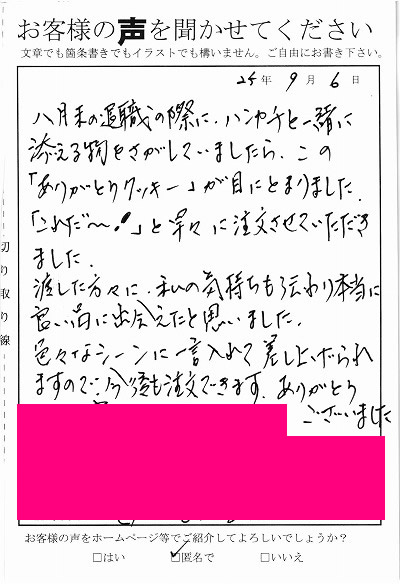 お客様の声を聞かせてください
文章でも箇条書きでもイラストでも構いません。ご自由にお書き下さい。
24年 9月 6日
八月末の退職の際に、ハンカチと一緒に
添える物をさがしていましたら、この
「ありがとうクッキー」が目にとまりました。
「これだ〜!」と早々に注文させていただき
ました。
渡した方々に、私の気持ちも伝わり本当に
良い品に出会えたと思いました。
色々なシーンに一言入れて差し上げられ
ますので今後も注文できます。ありがとう
ございました
切り取り線
お客様の声をホームページ等でご紹介してよろしいでしょうか?
□はい ☑匿名で □いいえ